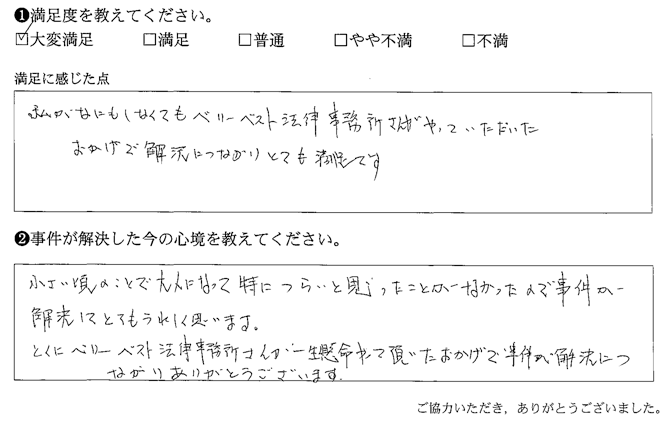 ❶満足度を教えてください。
☑大変満足 □満足 □普通 □やや不満 □不満
満足に感じた点
私がなにもしなくてもベリーベスト法律事務所さんがやっていただいた
おかげで解決につながりとても満足です
❷事件が解決した今の心境を教えてください。
小さい頃のことで大人になって特につらいと思ったことがなかったので事件が
解決してとてもうれしく思います。
とくにベリーベスト法律事務所さんが一生懸命やって頂いたおかげで事件が解決につ
ながりありがとうございます。
ご協力いただき，ありがとうございました。